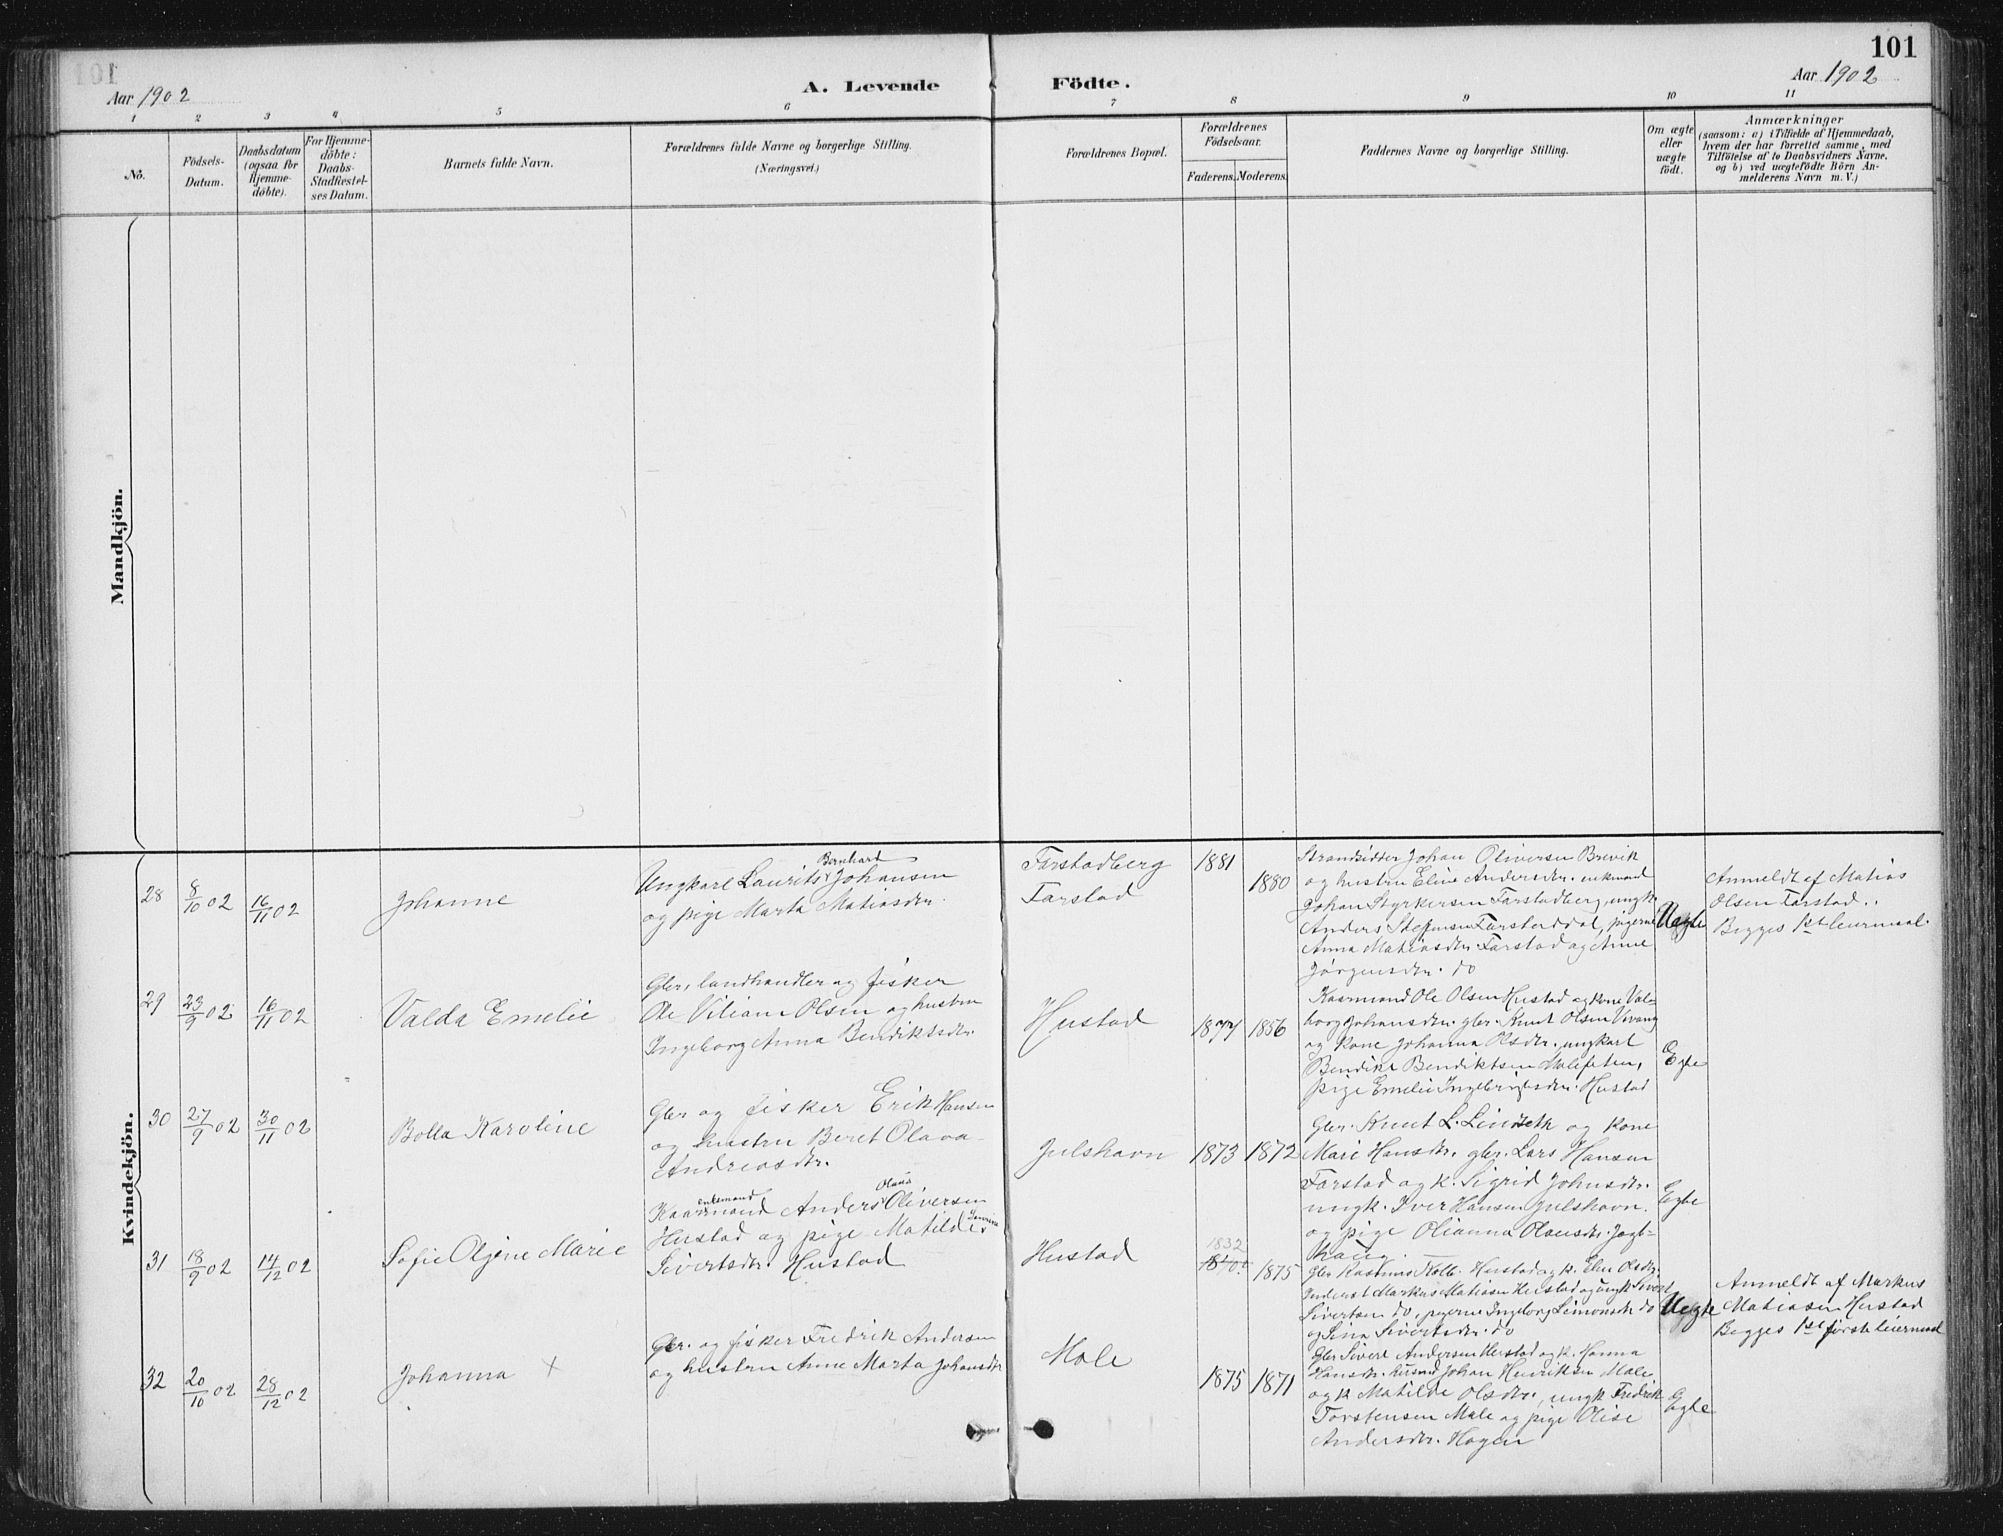 101
101
Aar 1902
A. Levende Födte.
Aar 1902
1 2 3 4 5 6 7 8 9 10 11
No.
Födsels-
Datum.
Daabsdatum
(ogsaa for
Hjemme-
döbte).
For Hjemme-
döbte:
Daabs-
Stadfæstel-
ses Datum.
Barnets fulde Navn.
Forældrenes fulde Navne og borgerlige Stilling.
(Næringsvei.)
Forældrenes Bopæl.
Forældrenes
Födselsaar.
Faderens. Moderens.
Faddernes Navne og borgerlige Stilling.
Om ægte
eller
uægte
födt.
Anmærkninger
(saasom: a) i Tilfælde af Hjemmedaab,
hvem der har forrettet samme, med
Tilföielse af to Daabsvidners Navne,
og b) ved uægtefödte Börn An-
melderens Navn m. V.)
Mandkjön.
Kvindekjön.
28
8/10 02
16/11 02
Johanne
Bernhart
Ungkarl Laurits Johansen
og pige Marta Matiasdtr.
Farstadberg
Farstad
1881
1880
Strandsidder Johan Oliversen Brevik
og hustru Eline Andersdtr. enkemand
Johan Styrkersen Farstadberg, ungk.
Anders Steffensen Farstaddal, pigerne
Anna Matiasdtr. Farstad og Anne
Jörgensdtr. do
Uegte
Anmeldt af Matias
Olsen Farstad.
Begges 1ste leiermaal.
29
23/9 02
16/11 02
Valda Emelie
Gbr, landhandler og fisker
Ole Viliam Olsen og hustru
Ingeborg Anna Bendiktsdtr.
Hustad
1877
1856
Kaarmand Ole Olsen Hustad og kone Val-
borg Johansdtr. gbr. Knut Olsen Vevang
og kone Johanna Olsdtr. ungkarl
Bendikt Bendiktsen Molefeten,
pige Emelie Ingebrigtsdtr. Hustad
Egte
30
27/9 02
30/11 02
Bolla Karoline
Gbr og fisker Erik Hansen
og hustru Beret Olava
Andreasdtr.
Julshavn
1873
1872
Gbr. Knut L. Lindseth og kone
Marie Hansdtr. gbr. Lars Hansen
Farstad og k. Sigrid Johnsdtr.
ungk. Iver Hansen Julshavn.
og pige Olianna Olausdtr. Jagt-
haug.
Egte
31
18/9 02
14/12 02
Sofie Oljene Marie
enkemand Olaus
Kaarmand Anders Oliversen
Hustad og pige Matilde
Sivertsdtr. Hustad
Hustad
1832
1875
Gbr Rasmus Kolb. Hustad og k. Elen Olsdtr.
Markus Matiasen Hustad og ungk Sivert
Sivertsen do, pigerne Ingeborg Simonsdtr do
og Sina Sivertsdtr. do
Uegte
Anmeldt af Markus
Matiasen Hustad
Begges 1ste första leiermaal
32
20/10 02
28/12 02
Johanna ×
Gbr. og fisker Fredrik Andersen
og hustru Anne Marta Johansdtr
Male
1875
1871
Gbr Sivert Andersen Hustad og k. Hanna
Hansdtr. husmd Johan Henriksen Male,
og k Matilde Olsdtr., ungk Fredrik
Torstensen Male og pige Olise
Andersdtr. Hagen
Egte